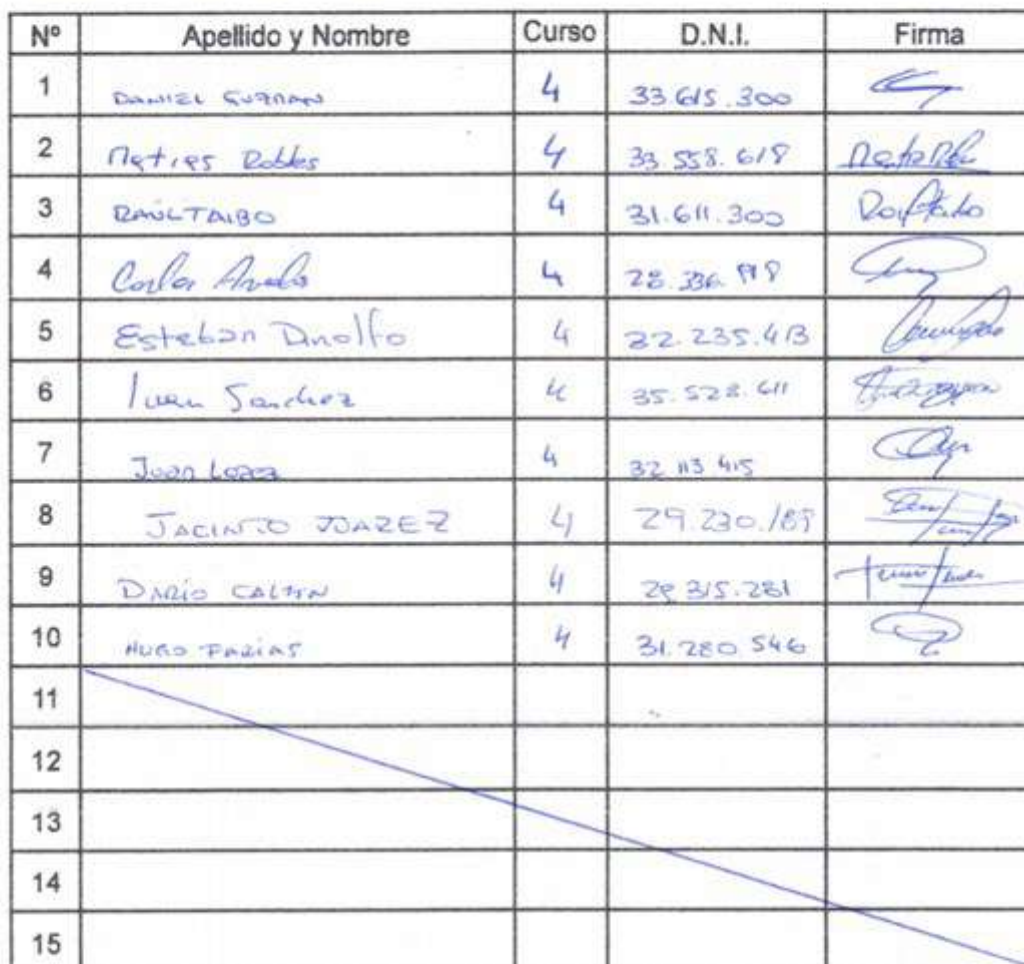 Nº Apellido y Nombre Curso D.N.I. Firma
1 DANIEL GUZMAN 4 33.615.300
2 Matias Robles 4 33.558.618
3 RAÚL TAIBO 4 31.611.300
4 Carlos 4 28.336.
5 Esteban Dinolfo 4 22.235.413
6 Ivan Sanchez 4 35.528.611
7 Juan Lopez 4 32 113 415
8 JACINTO JUAREZ 4 29.230.189
9 DARÍO 4 29.315.281
10 HUGO FARIAS 4 31.280 546
11
12
13
14
15